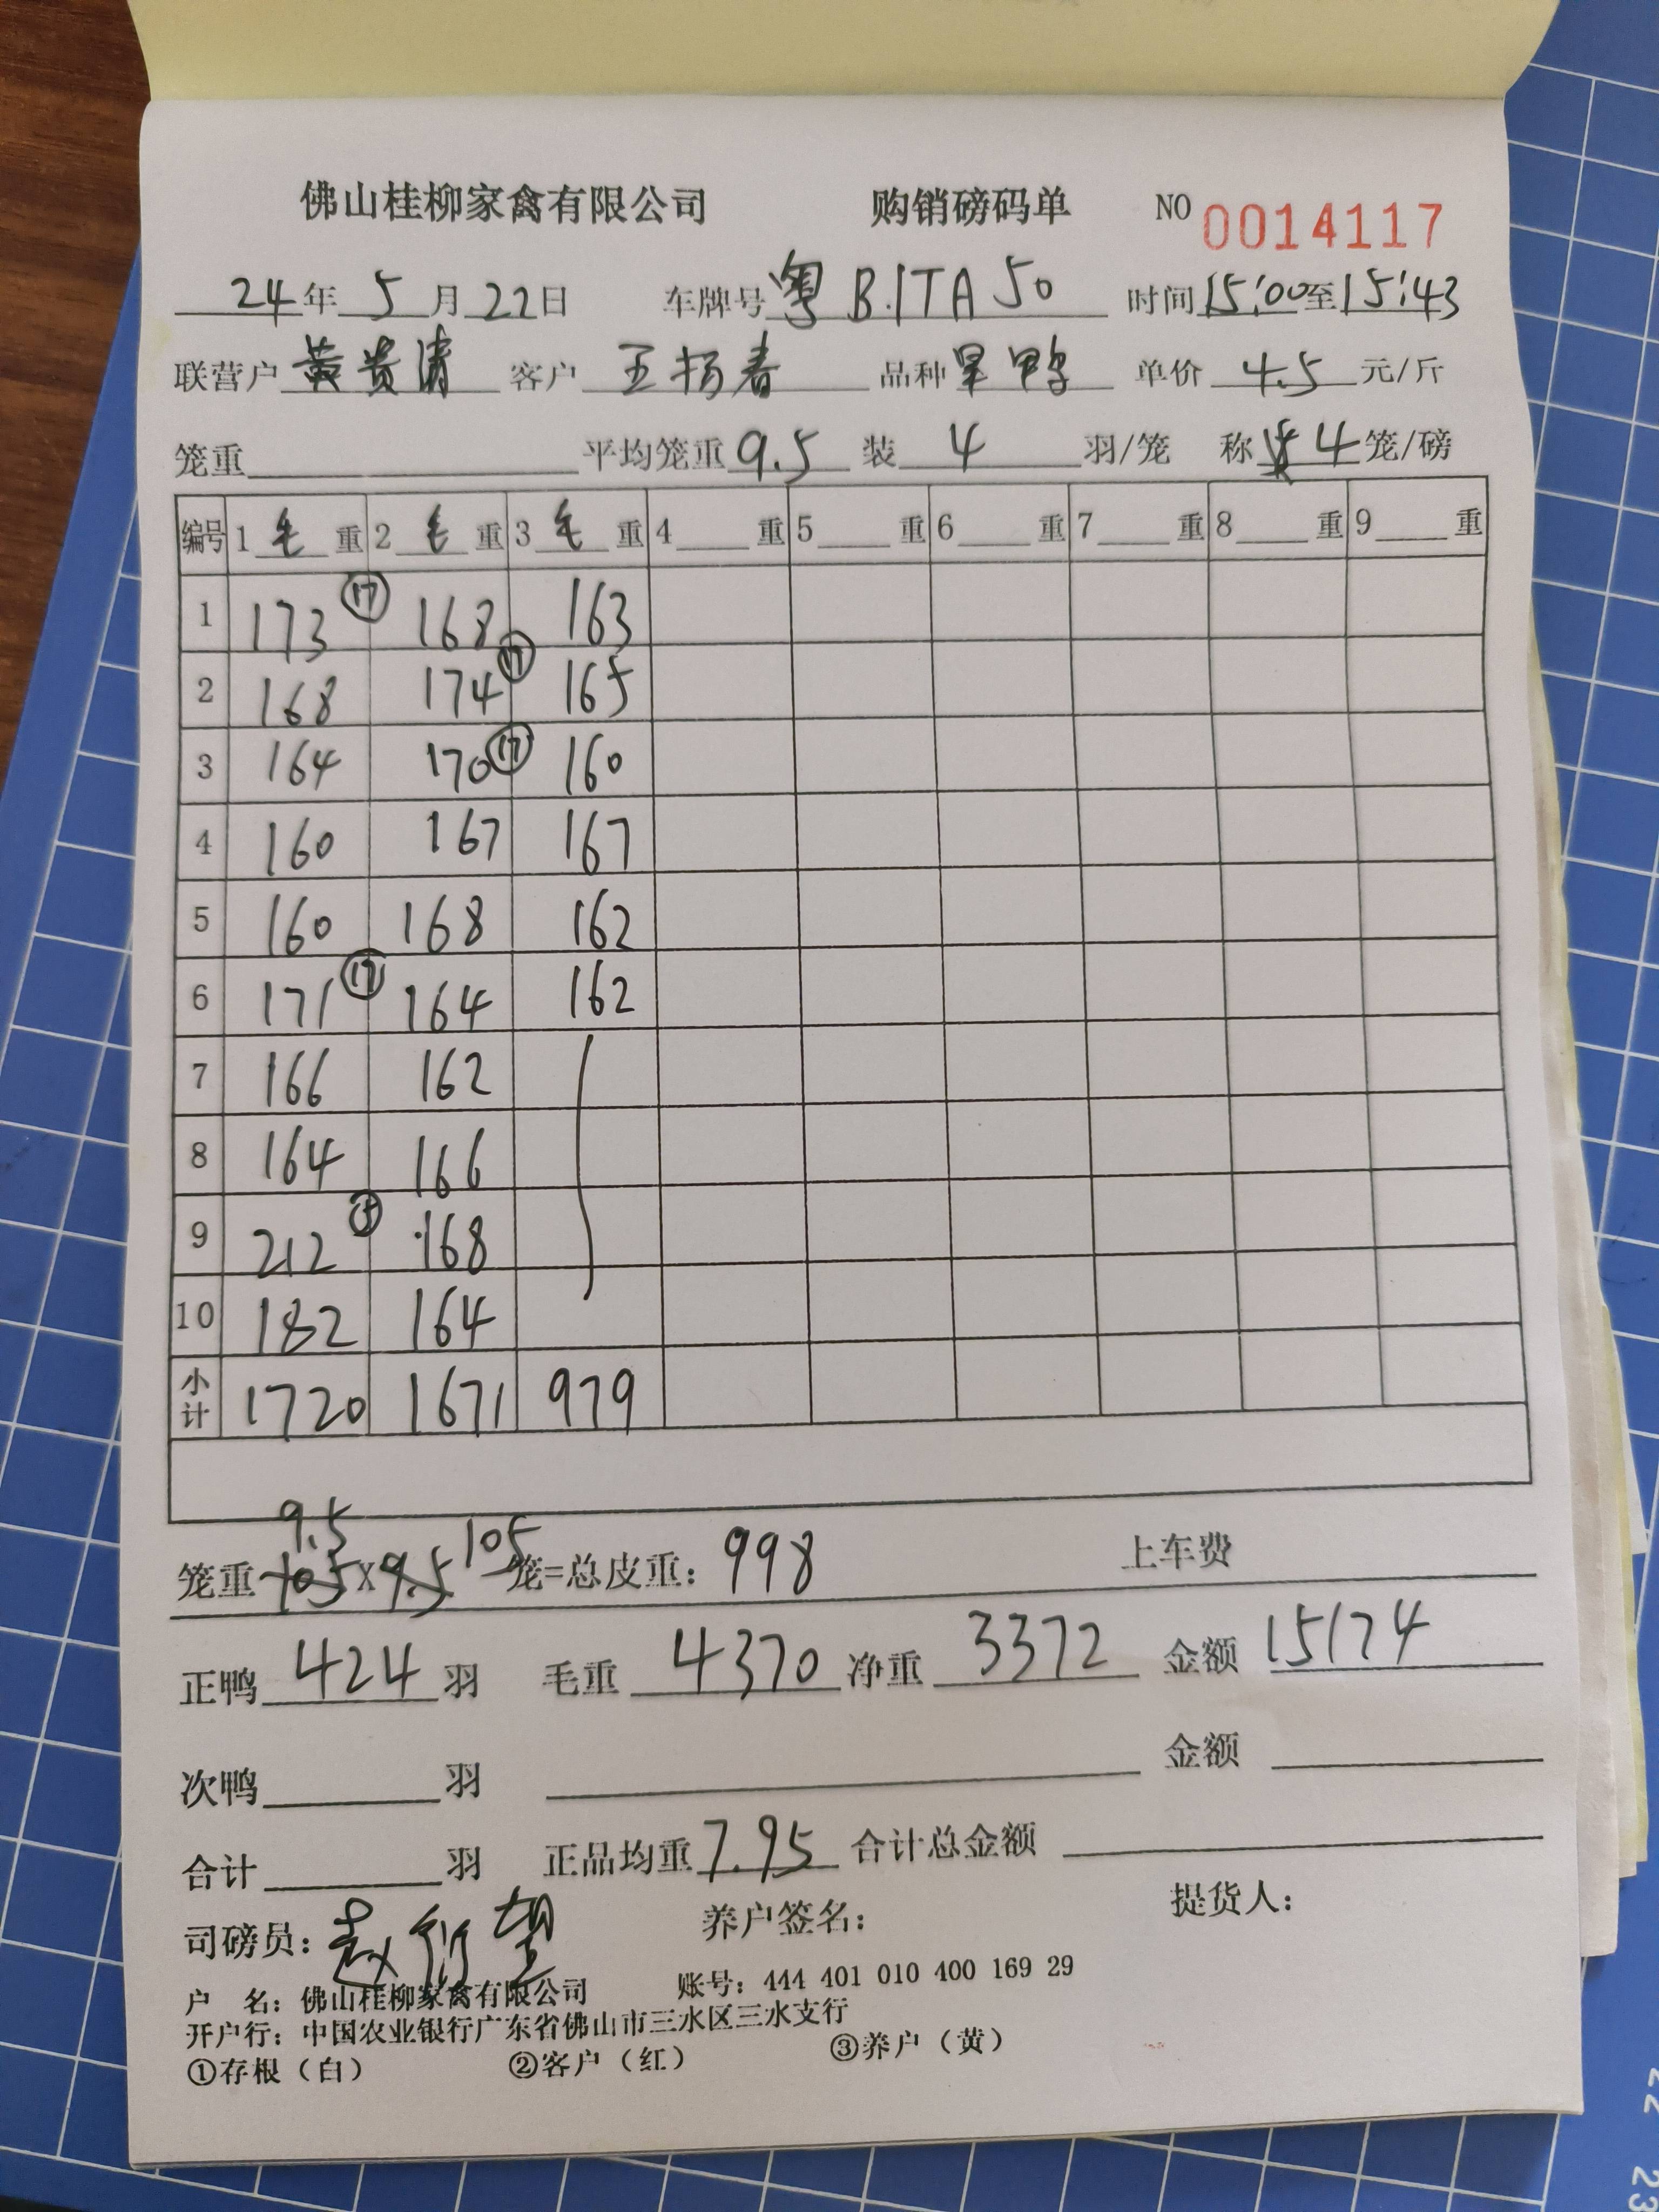 佛山桂柳家禽有限公司 购销磅码单 NO 0014117
24年5月22日 车牌号 粤B.1TA50 时间15:00至15:43
联营户 黄贵清 客户 王扬春 品种 旱鸭 单价 4.5 元/斤
笼重 平均笼重 9.5 装 4 羽/笼 称 4 笼/磅
编号 1 毛 重 2 毛 重 3 毛 重 4 重 5 重 6 重 7 重 8 重 9 重
1 173 ⑰ 168 163
2 168 174 ⑰ 165
3 164 170 ⑰ 160
4 160 167 167
5 160 168 162
6 171 ⑰ 164 162
7 166 162
8 164 166
9 212 168
10 182 164
小计 1720 1671 979
9.5 105
笼重 105 X 9.5 笼=总皮重: 998 上车费
正鸭 424 羽 毛重 4370 净重 3372 金额 15174
次鸭 羽 金额
合计 羽 正品均重 7.95 合计总金额
司磅员: 赵衍望 养户签名: 提货人:
户 名: 佛山桂柳家禽有限公司 账号: 444 401 010 400 169 29
开户行: 中国农业银行广东省佛山市三水区三水支行
①存根（白） ②客户（红） ③养户（黄）
22
23